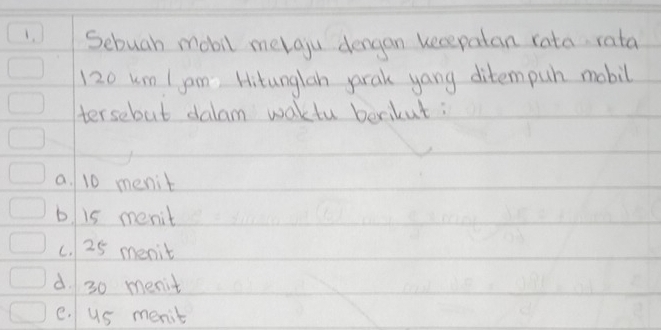 1. Sebuah mobil melaju dengan kecepatan rata rata
120 km / jam. Hitunglah jarak yang ditempuh mobil
tersebut dalam waktu berikut :
a. 10 menit
b. 15 menit
c. 25 menit
d. 30 menit
e. 45 menit